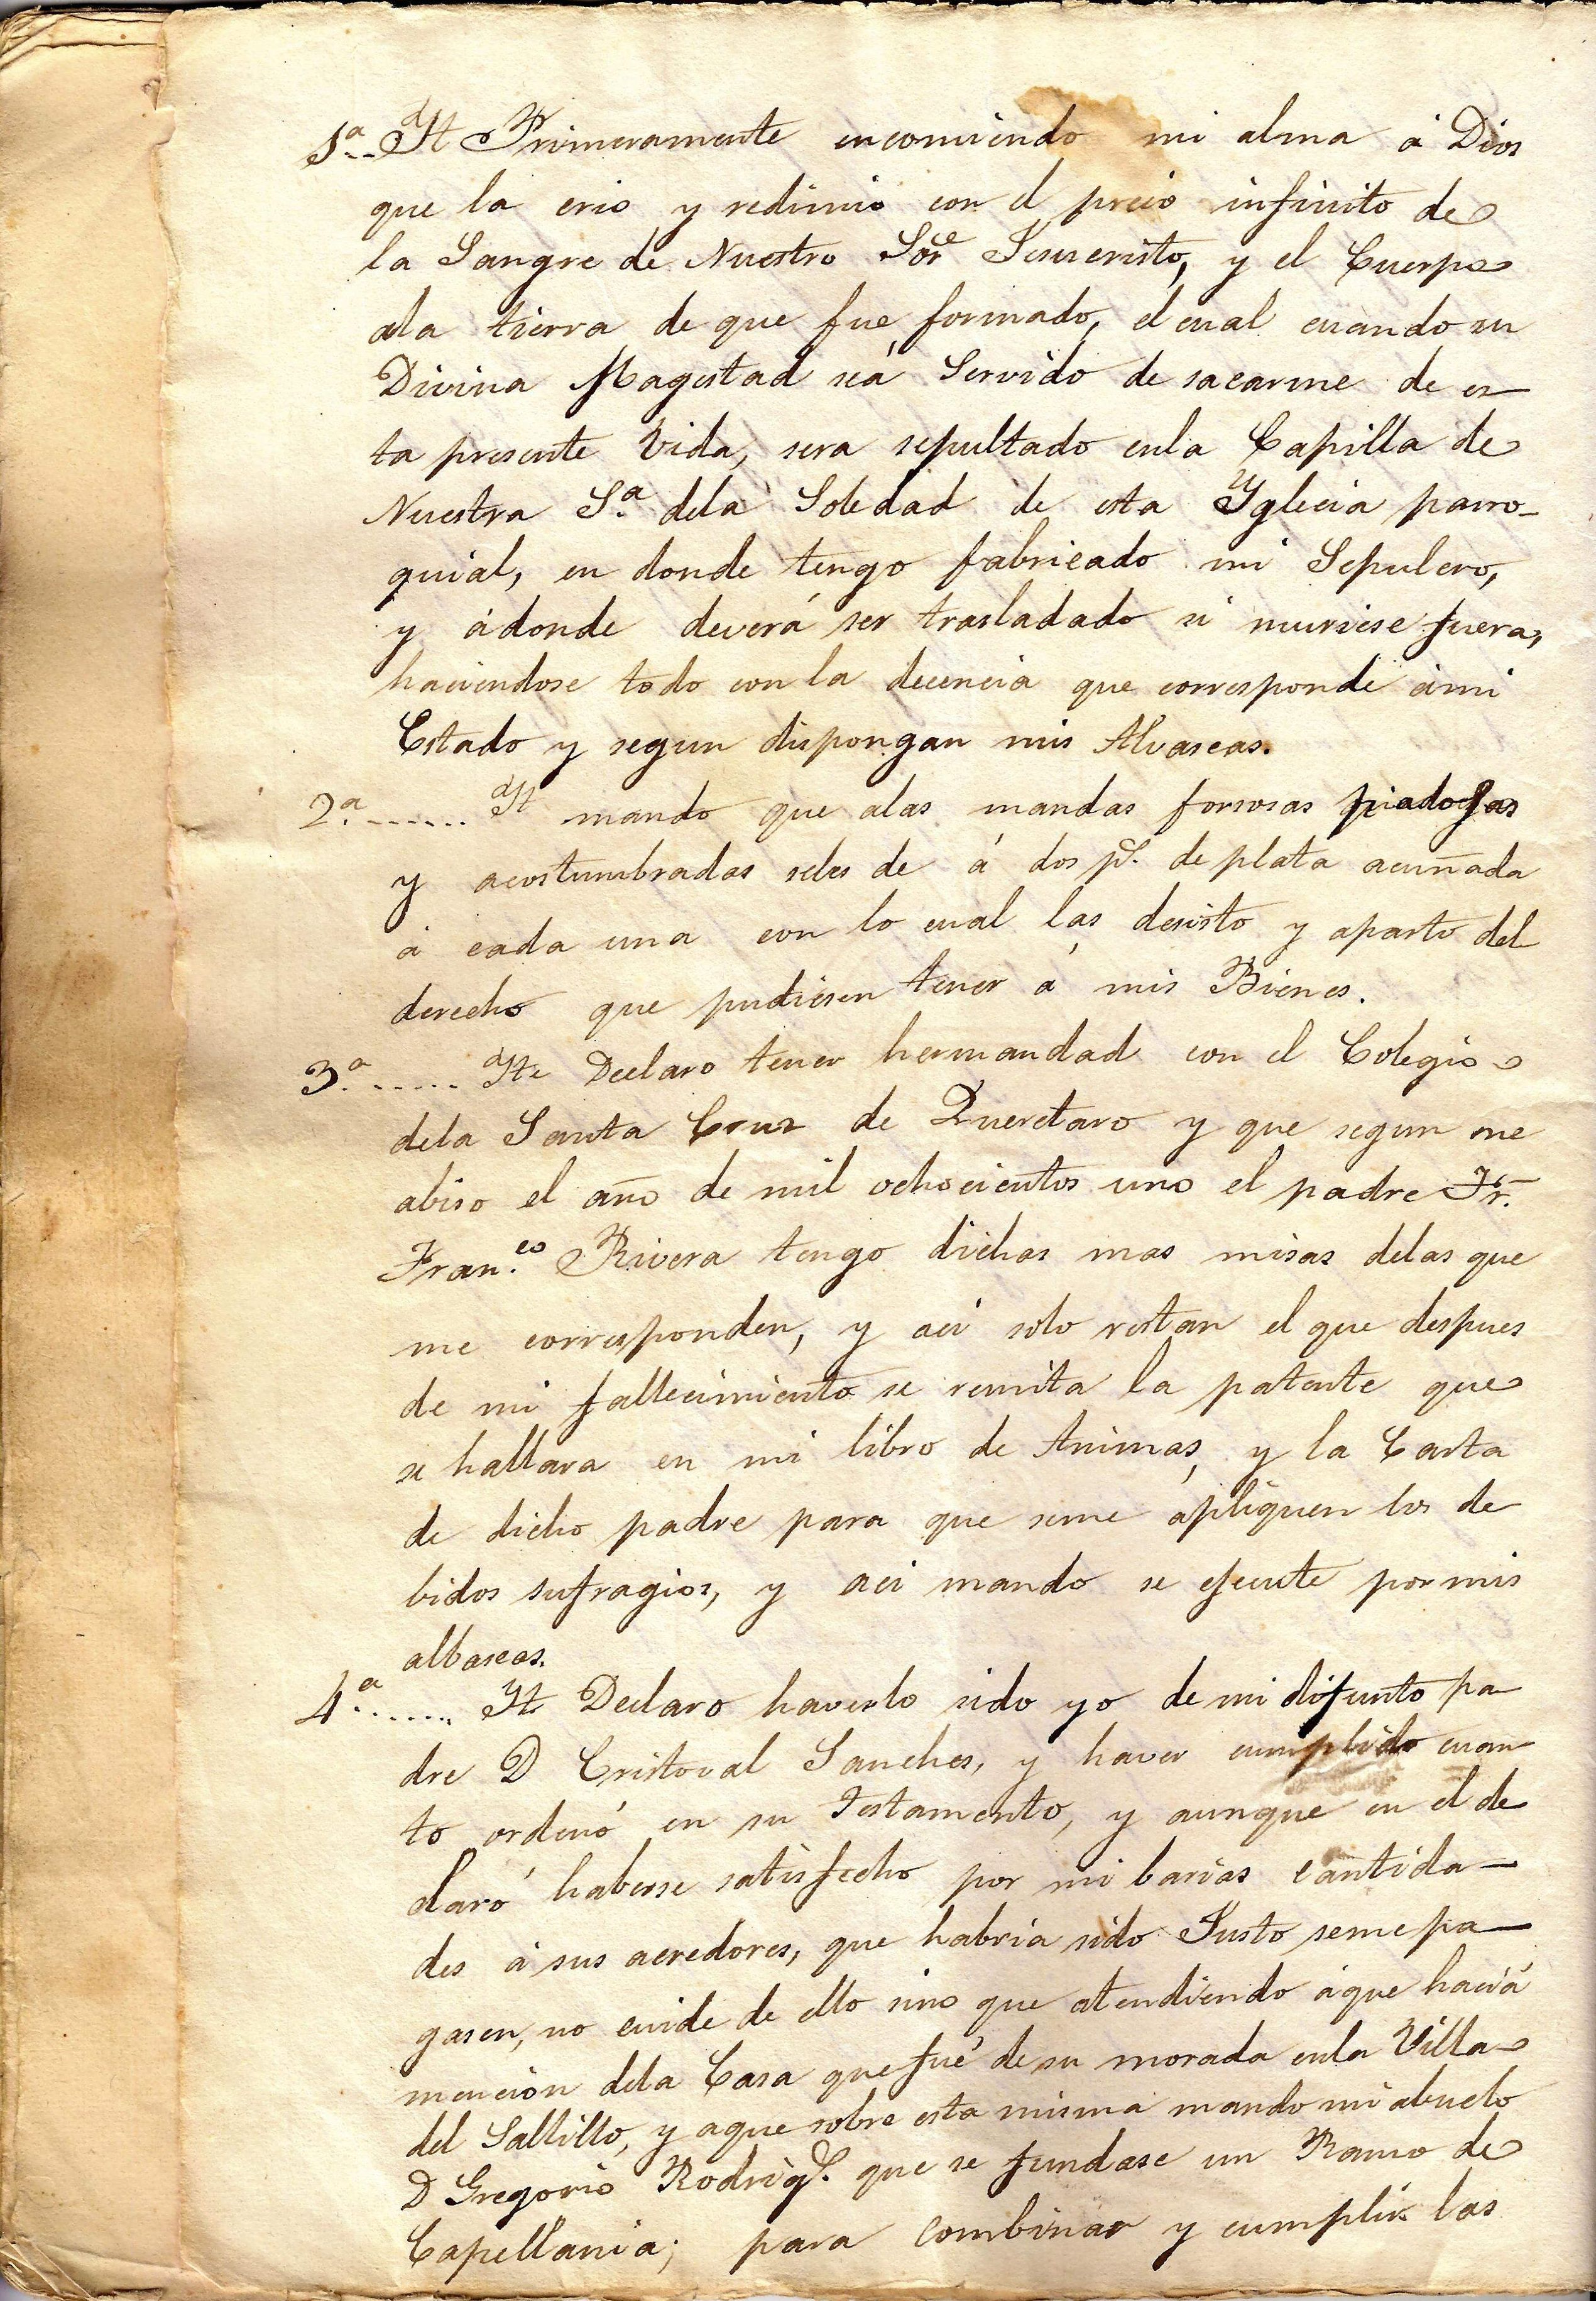 1ª.. It Primeramente encomiendo mi alma á Dios
que la crio y redimio con el precio infinito de
la Sangre de Nuestro Sor Jesucristo, y el Cuerpo
ala tierra de que fue formado, el cual cuando su
Divina Magestad seá Servido de sacarme de es
ta presente Vida, sera sepultado enla Capilla de
Nuestra Sª. dela Soledad de esta Yglecia parro-
quial, en donde tengo fabricado mi Sepulcro,
y ádonde deverá ser trasladado si muriese fuera,
haciendose todo con la decencia que corresponde ámi
Estado y segun dispongan mis Alvaseas.
2ª. ...... It mando que alas mandas forsosas piadosas
y acostumbradas seles de á dos ps. de plata acuñada
á cada una con lo cual las desisto y aparto del
derecho que pudiesen tener á mis Bienes.
3ª. ..... Ite Declaro tener hermandad con el Colegio
dela Santa Cruz de Queretaro y que segun me
abiso el año de mil ochocientos uno el padre Fr.
Fran.co Rivera tengo dichas mas misas delas que
me corresponden, y aci solo restan el que despues
de mi fallecimiento se remita la patente que
se hallara en mi libro de Animas, y la Carta
de dicho padre para que seme ápliquen los de
bidos sufragios, y aci mando se ejecute por mis
albaseas.
4ª. ...... Ite Declaro haverlo sido yo de mi difunto pa
dre D Cristoval Sanches, y haver cumplido cuan
to ordenó en su Testamento, y aunque en el de
claró haberse satisfecho por mi barias cantida-
des á sus acredores, que habria sido Justo seme pa-
gasen, no cuide de ello sino que atendiendo áque haciá
mencion dela Casa que fué de su morada enla Villa
del Saltillo, y aque sobre esta misma mando mi abuelo
D Gregorio Rodrigs. que se fundase un Ramo de
Capellania; para combinar y cumplir las